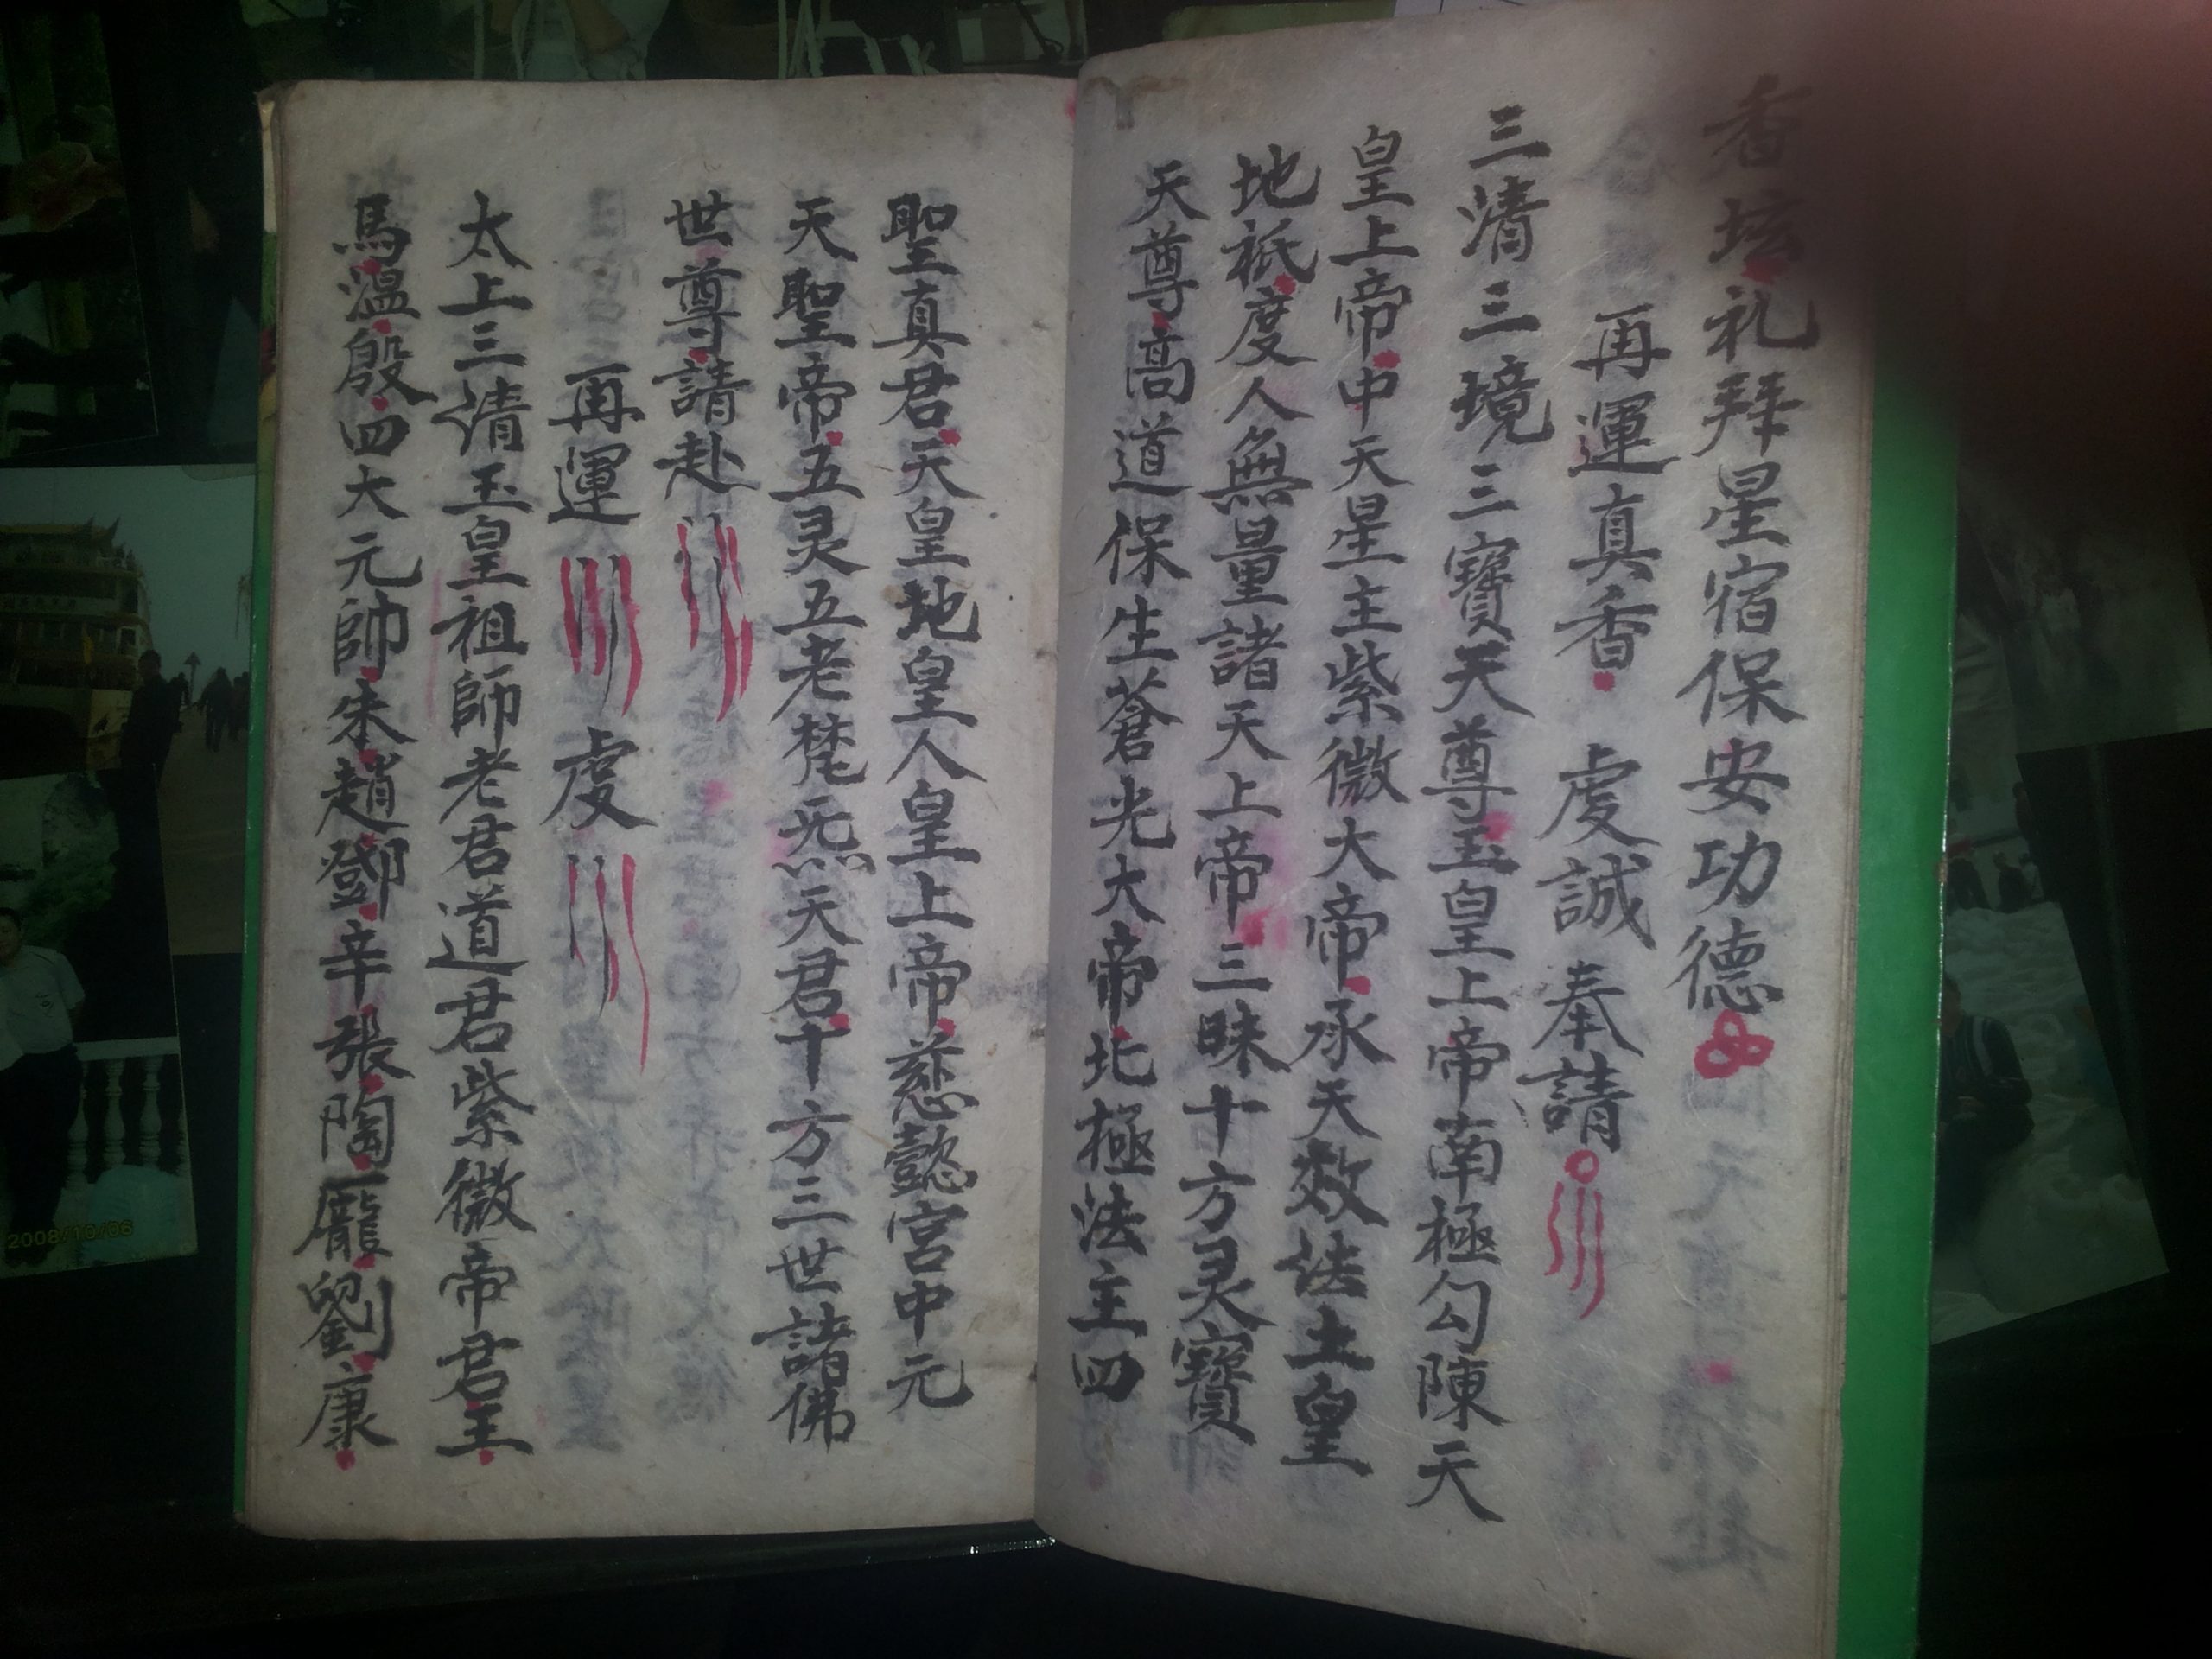 香坛礼拜星宿保安功德
再運真香 虔誠奉請
三清三境三寶天尊玉皇上帝南極勾陳天
皇上帝中天星主紫微大帝承天效法土皇
地祇度人無量諸天上帝三昧十方灵寶
天尊高道保生蒼光大帝北極法主四
聖真君天皇地皇人皇上帝慈懿宮中元
天聖帝五灵五老梵炁天君十方三世諸佛
世尊請赴
再運 虔
太上三清玉皇祖師老君道君紫微帝君王
馬溫殷四大元帥朱趙鄧辛張陶龐劉康
2008/10/06